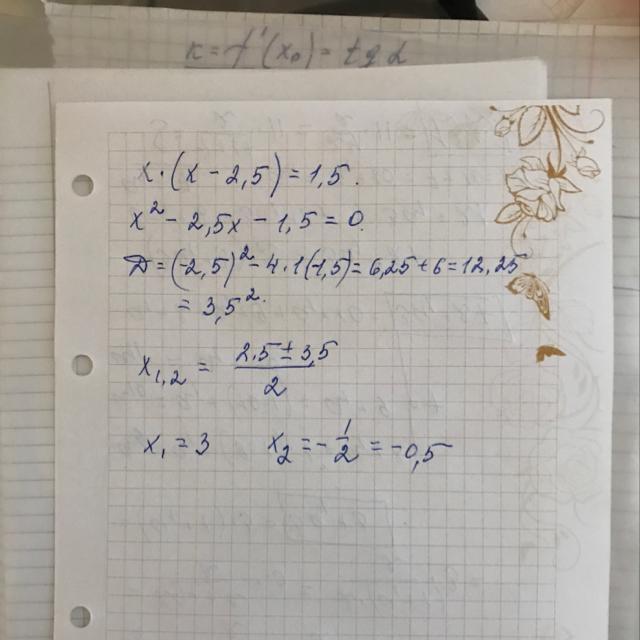 к = f'(x₀) = tg α
x·(x - 2,5) = 1,5.
x² - 2,5x - 1,5 = 0.
D = (-2,5)² - 4·1(-1,5) = 6,25 + 6 = 12,25
= 3,5².
x₁,₂ = (2,5 ± 3,5)/2
x₁ = 3 x₂ = -1/2 = -0,5